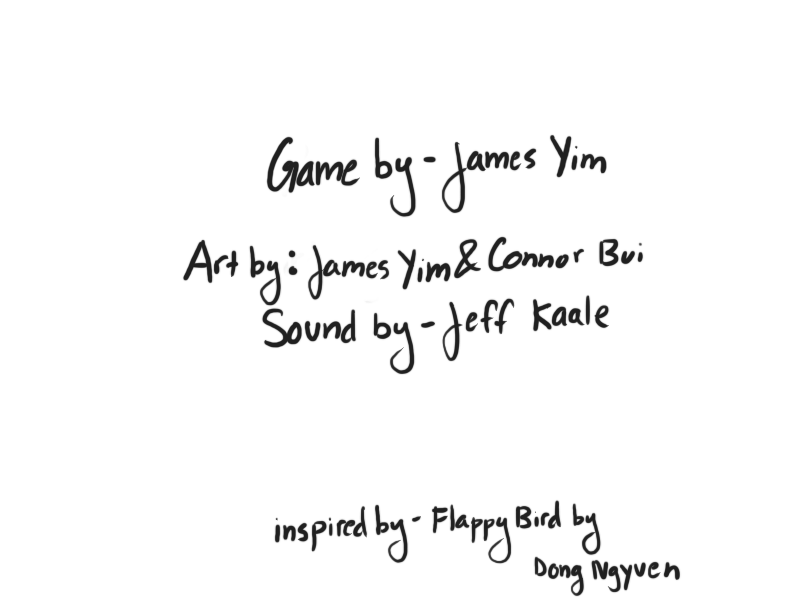 Game by - James Yim
Art by: James Yim & Connor Bui
Sound by - Jeff Kaale
inspired by - Flappy Bird by
Dong Ngyven